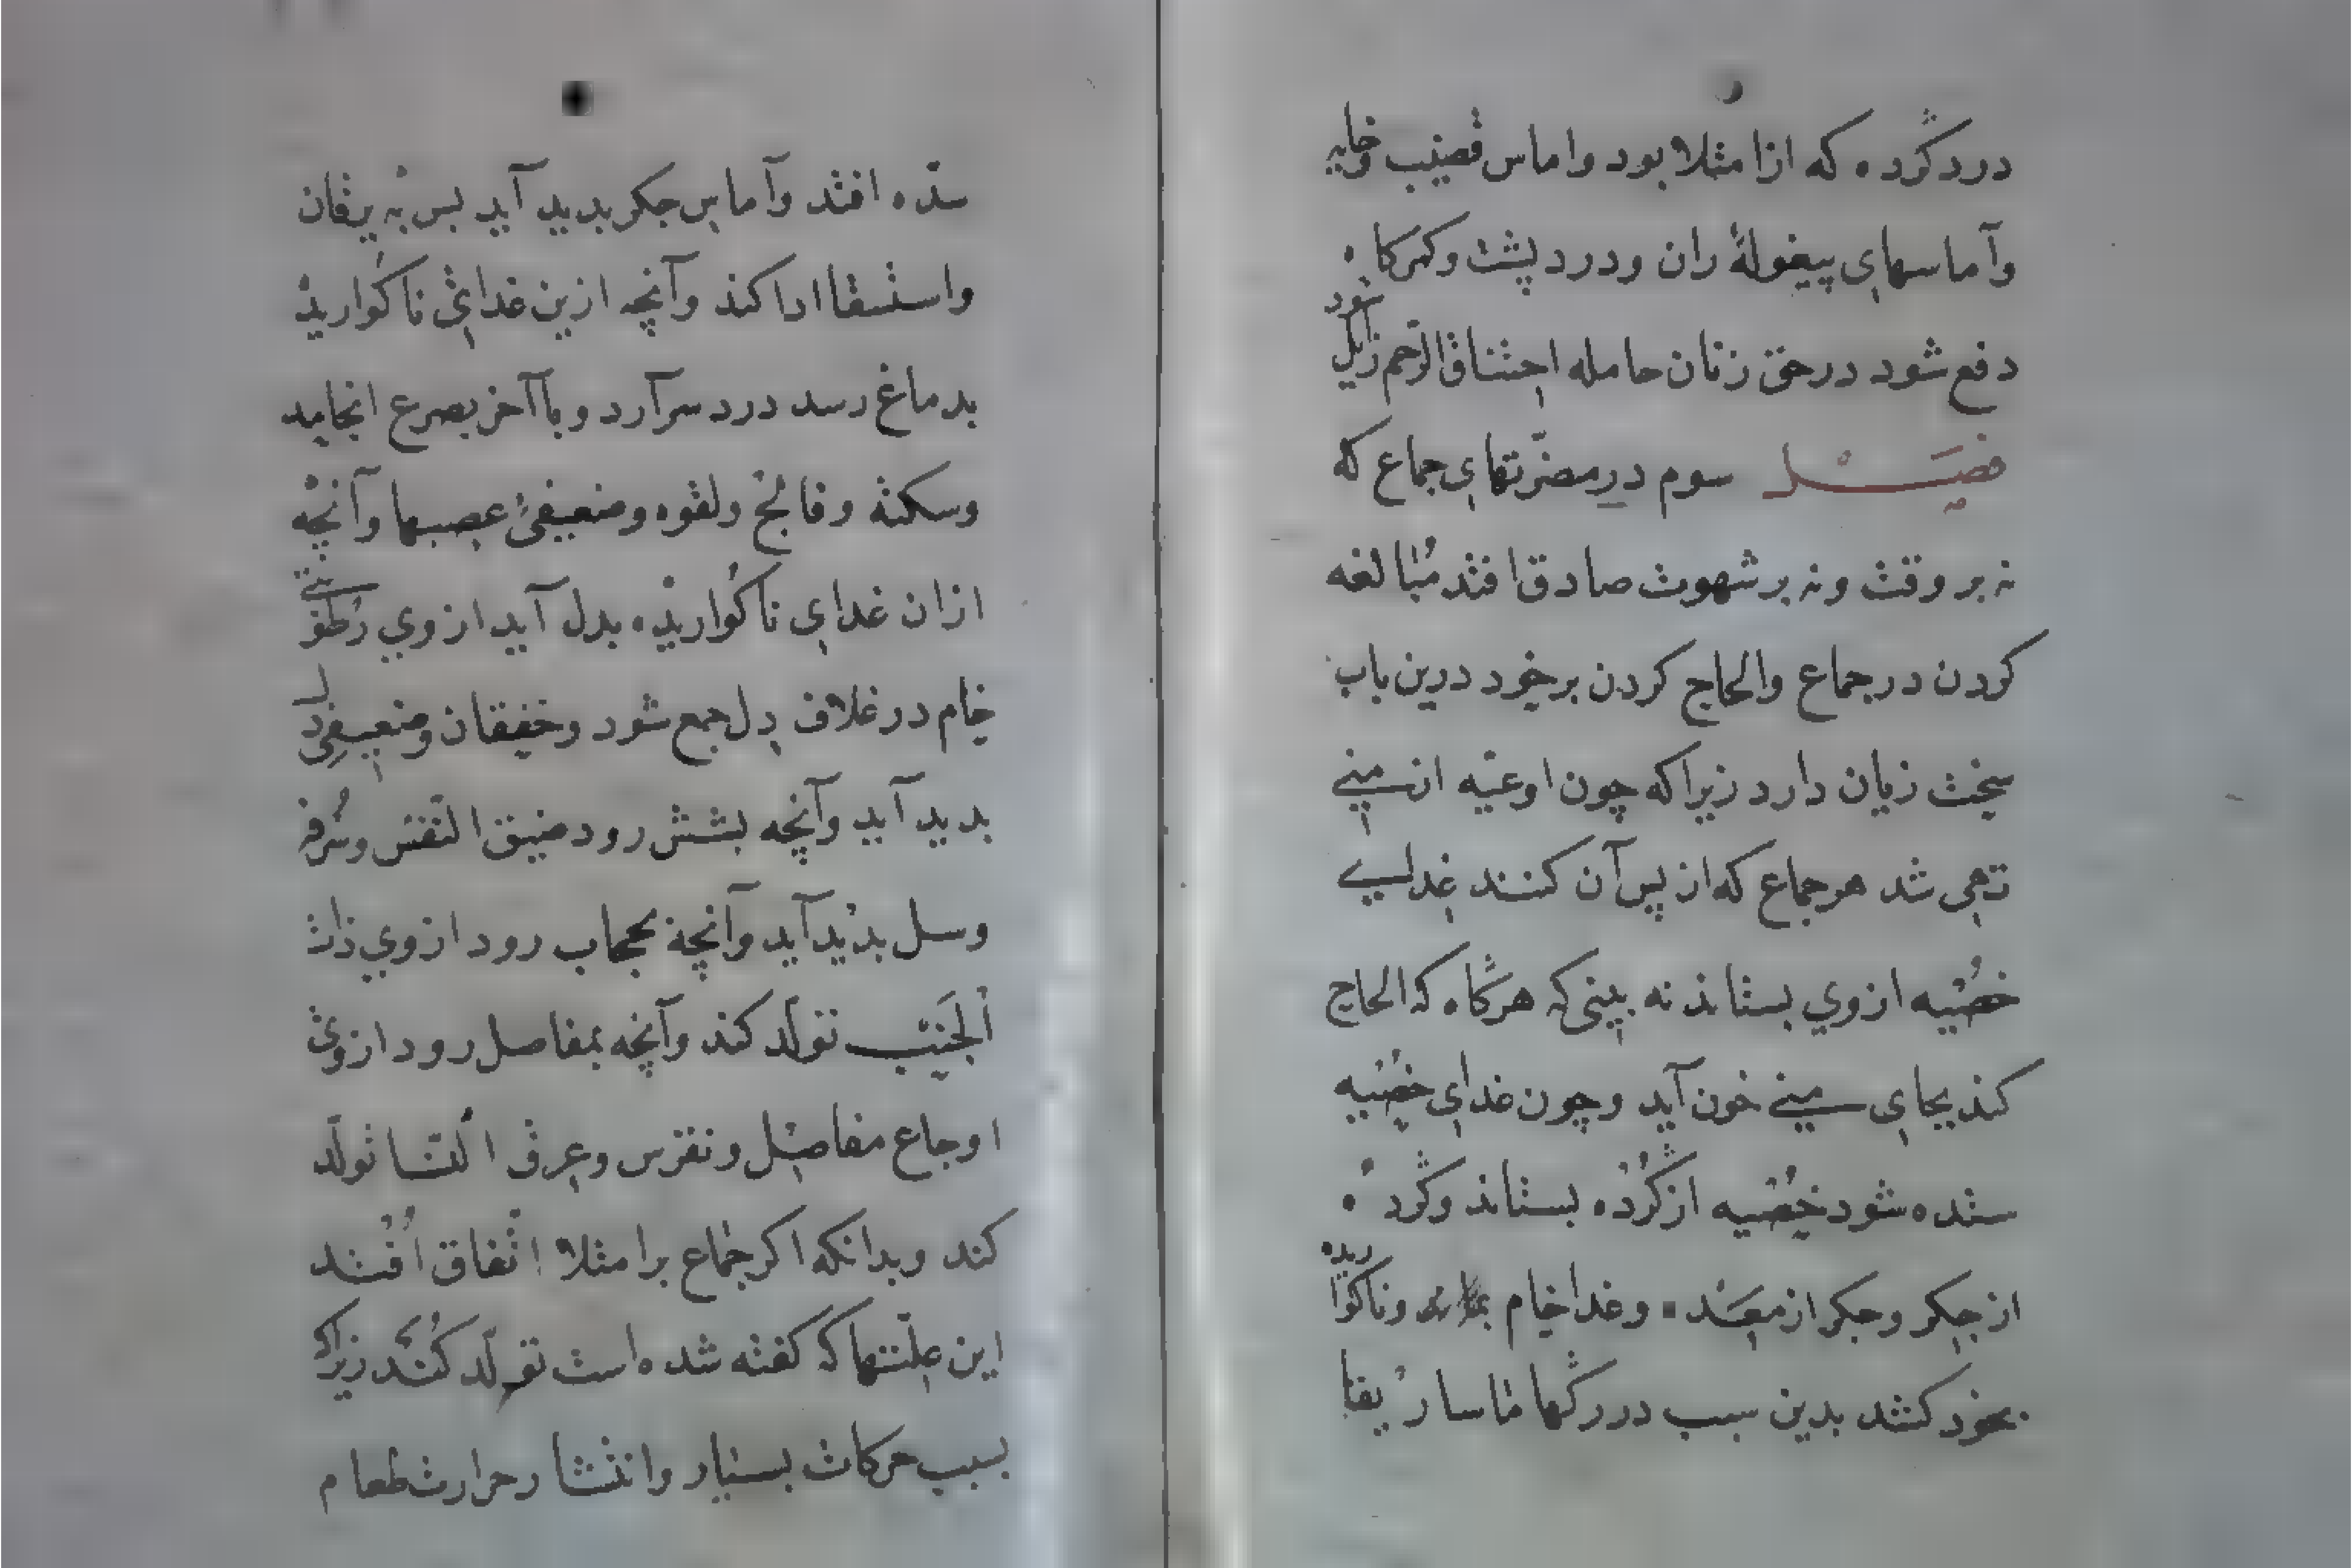 درد گرده که از امتلا بود و اماس قضیب و خایه
و آماسهای پیغولهٔ ران و درد پشت و کمرکاه
دفع شود در حق زنان حامله اختناق الرّحم زایل شود
فصل سوم در مضرّتهای جماع که
نه بر وقت و نه بر شهوت صادق افتد مُبالغه
کردن در جماع و الحاح کردن بر خود درین باب
سخت زیان دارد زیرا که چون اوعیّه از منی
تهی شد هر جماع که از پس آن کنند غدای
خُصْیه از وی بستاند نه بینی که هرگاه که الحاح
کند بجای منی خون آید و چون غدای خُصْیه
ستده شود خُصْیه از گُرْده بستاند و گرده
از جکر و جکر از معده و غدا خام و ناکواریده
بخود کشد بدین سبب در رگها ماساریقا
سدّه افتد و آماس جکر بدید آید بس به یرقان
و استسقا ادا کند و آنچه ازین غدای ناکوارید
بدماغ رسد درد سر آرد و باآخر بصرع انجامید
و سکته و فالج و لقوه و ضعیفیٔ عصبها و آنچه
ازان غدای ناکُواریده بدل آید از وی رطوبتی
خام در غلاف دل جمع شود و خفیقان و ضعیفی دل
بدید آید و آنچه بشش رود ضیق النّفس و سُرفه
و سل بدید آید و آنچه بحجاب رود از وی ذات
الجَنْب تولّد کند و آنچه بمفاصل رود از وی
اوجاع مفاصل و نقرس و عرق النّسا تولّد
کند و بدانکه اکر جماع بر امتلا اتّفاق اُفتد
این علّتها که کفته شده است تولّد کُنَد زیراکه
بسبب حرکات بسیار و انتشار حرارت طعام